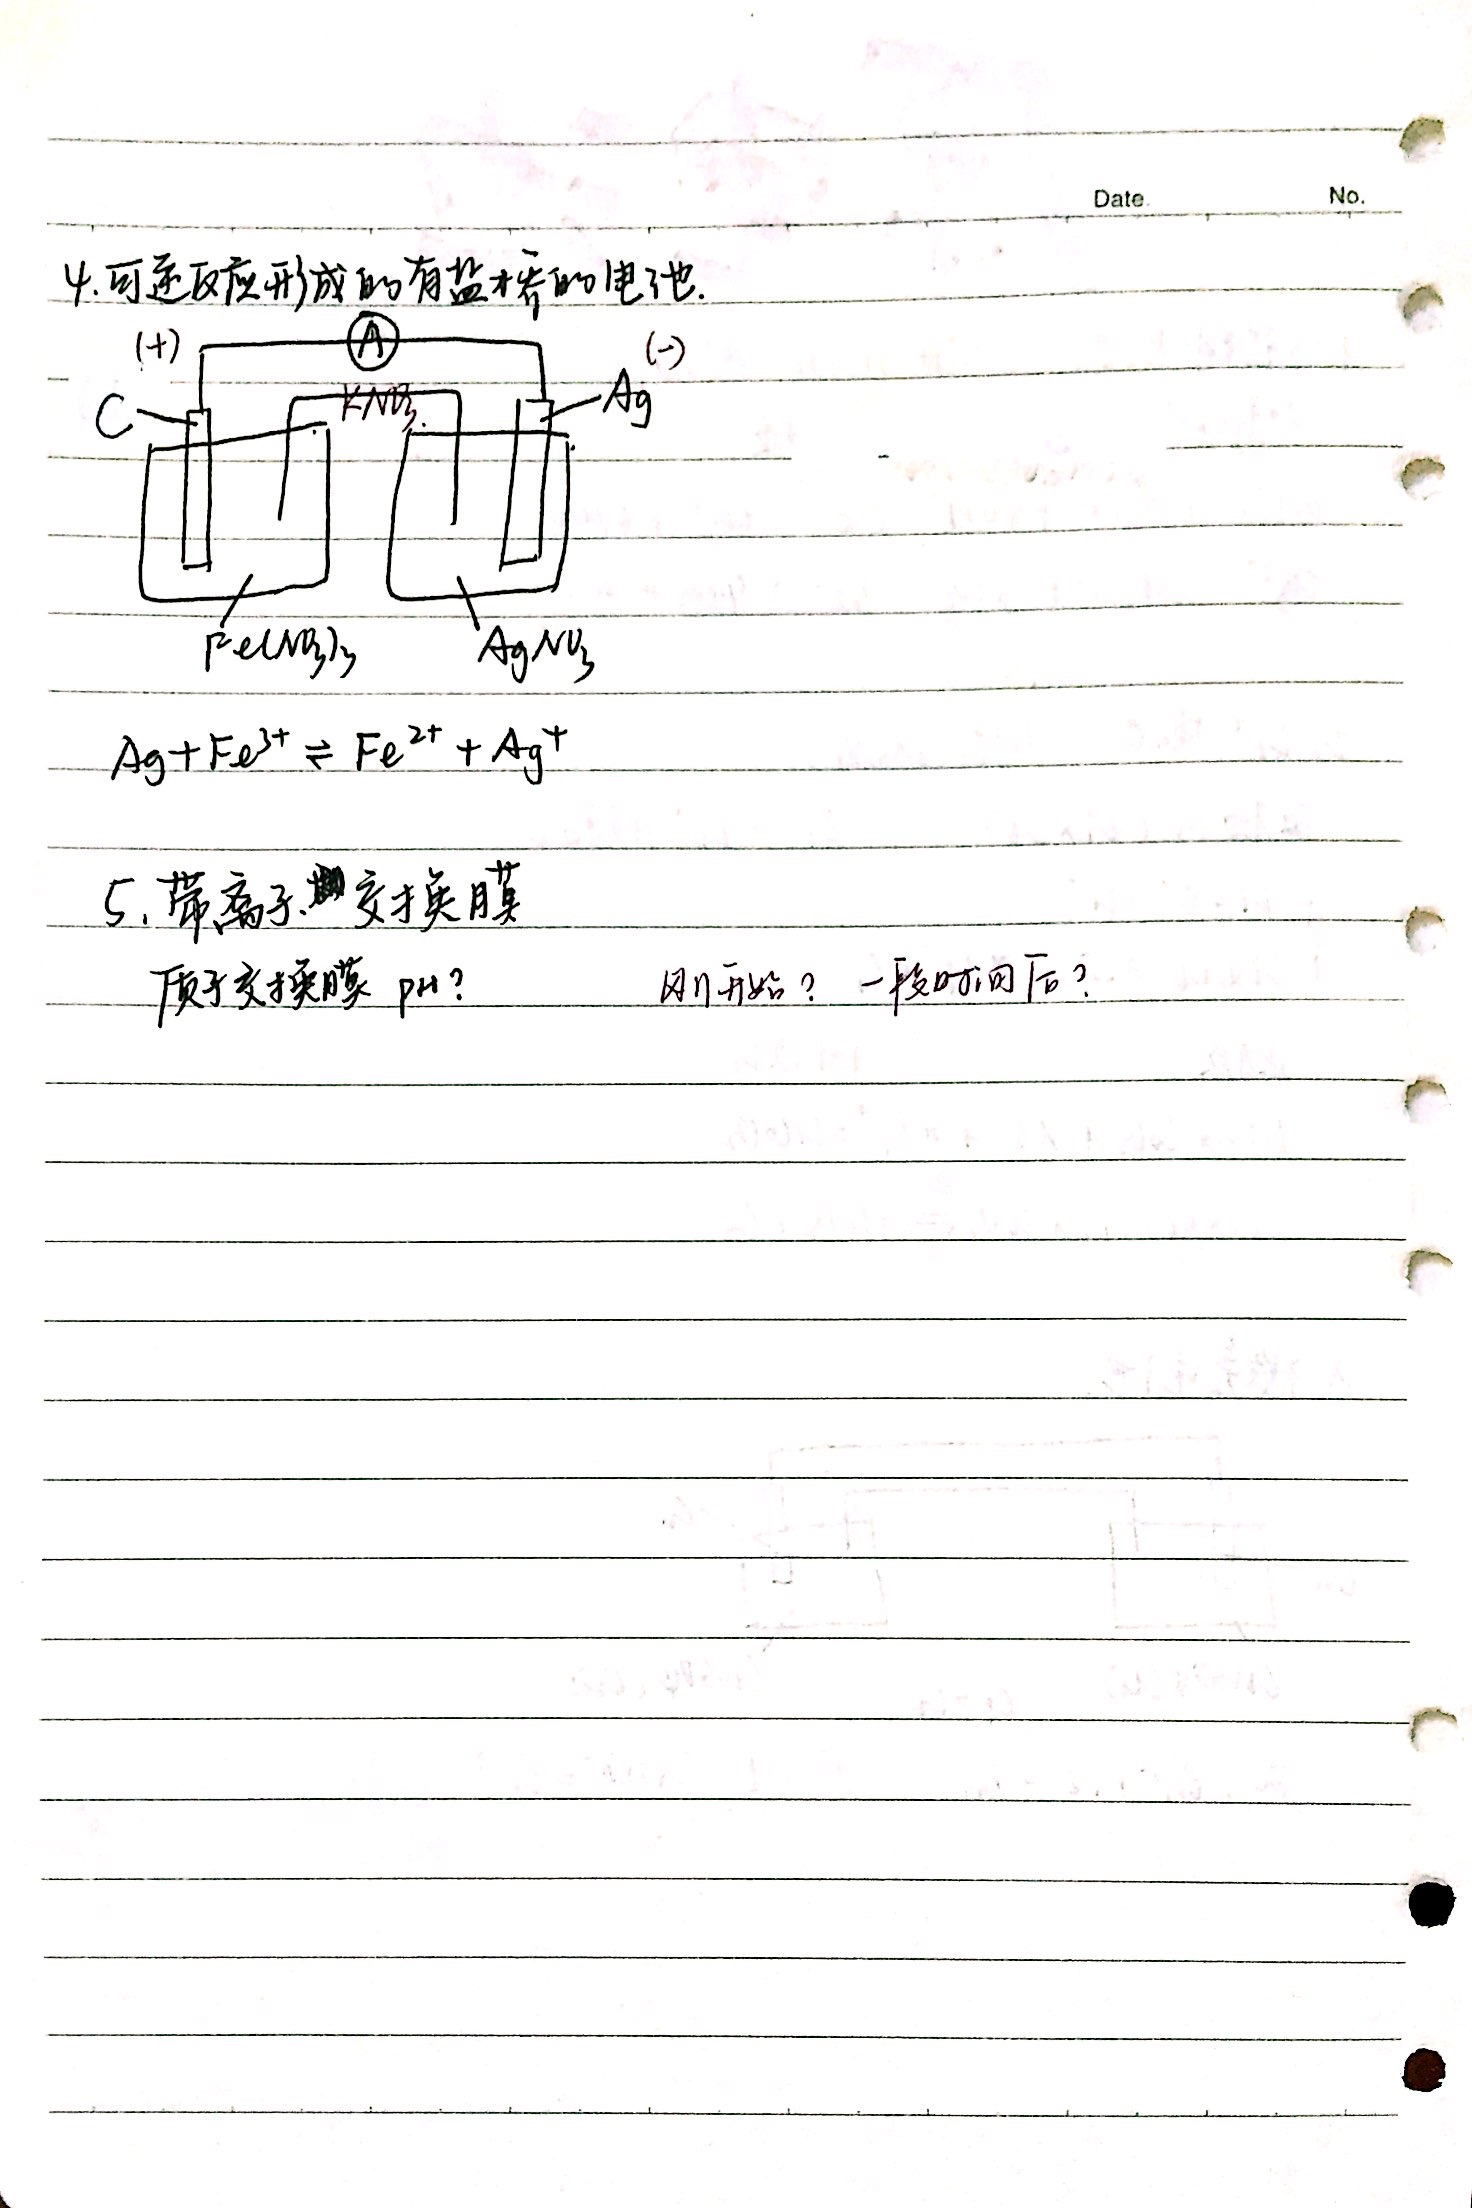 Date. No.
4.可逆反应形成的有盐桥的电池.
(+) A (-)
C KNO₃. Ag
Fe(NO₃)₃ AgNO₃
Ag+Fe³⁺⇌Fe²⁺+Ag⁺
5.带离子交换膜
质子交换膜 pH? 刚开始? 一段时间后?